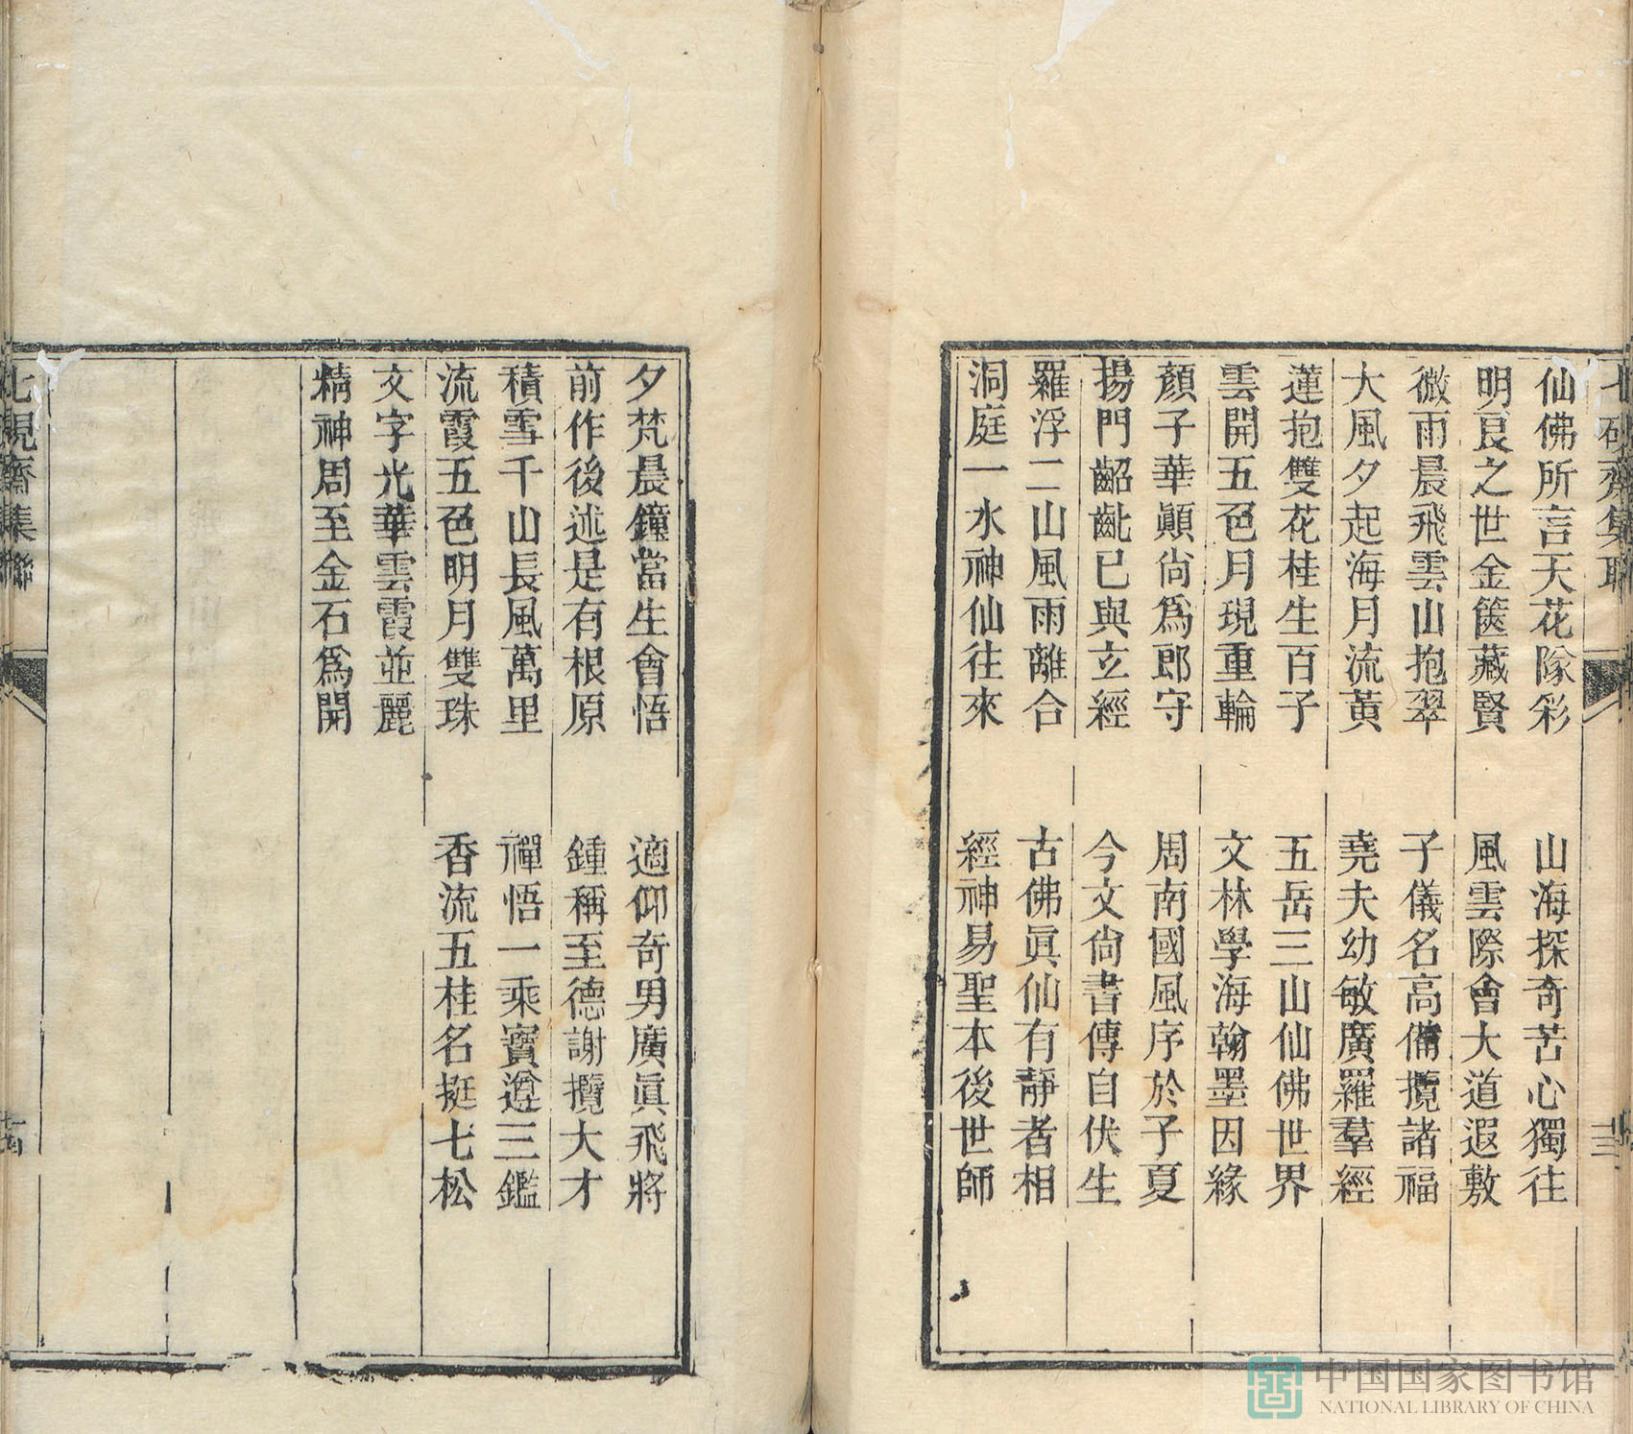 仙佛所言天花隊彩　山海探奇苦心獨往
明良之世金篋藏賢　風雲際會大道遐敷
微雨晨飛雲山抱翠　子儀名高備攬諸福
大風夕起海月流黃　堯夫幼敏廣羅羣經
蓮抱雙花桂生百子　五岳三山仙佛世界
雲開五色月現重輪　文林學海翰墨因緣
顏子華顚尙爲郎守　周南國風序於子夏
揚門齠齔已與玄經　今文尙書傳自伏生
羅浮二山風雨離合　古佛眞仙有靜者相
洞庭一水神仙往來　經神易聖本後世師
夕梵晨鐘當生會悟　適仰奇男廣眞飛將
前作後述是有根原　鍾稱至德謝攬大才
積雪千山長風萬里　禪悟一乘寶遵三鑑
流霞五色明月雙珠　香流五桂名挺七松
文字光華雲霞並麗
精神周至金石爲開
齋集聯
中国国家图书馆
NATIONAL LIBRARY OF CHINA